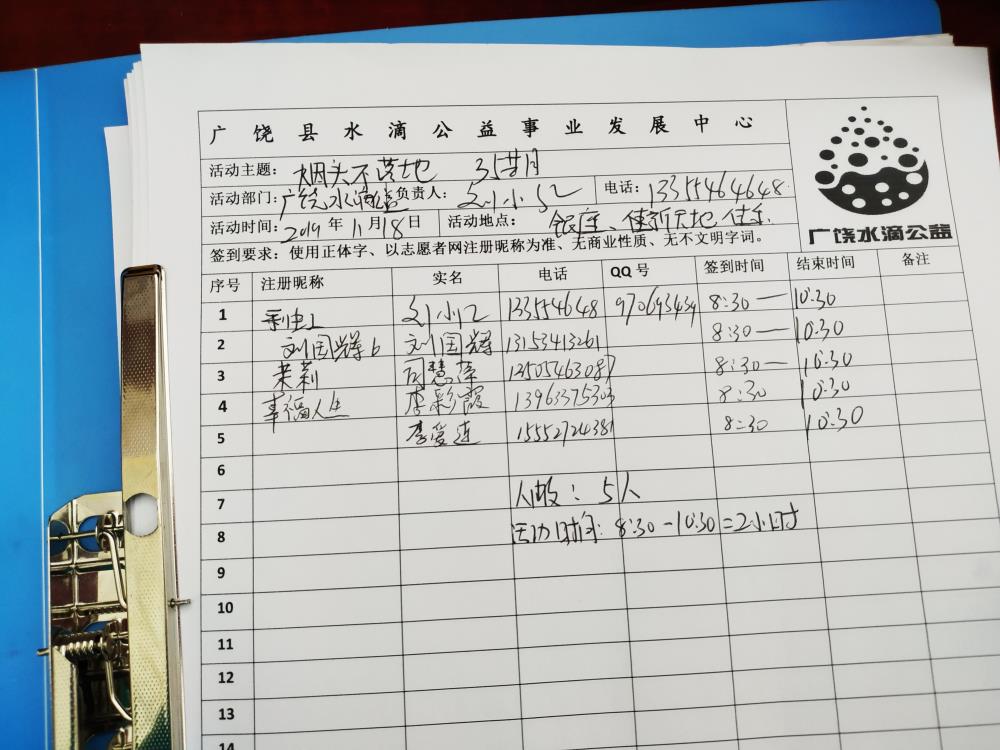 广饶县水滴公益事业发展中心
活动主题： 烟头不落地 35
活动部门： 广饶水滴公益 负责人： 刘小红 电话： 13355464648
活动时间： 2019年11月18日 活动地点： 银座、佳新天地
签到要求：使用正体字、以志愿者网注册昵称为准、无商业性质、无不文明字词。
序号 注册昵称 实名 电话 QQ号 签到时间 结束时间 备注
1 刘小红 970693439 8:30 — 10:30
2 刘国辉6 刘国辉 13153413261 8:30 — 10:30
3 茉莉 周慧萍 13505463087 8:30 — 10:30
4 幸福人生 李彩霞 13963375303 8:30 10:30
5 李爱连 15552724381 8:30 10:30
6
7 人数：5人
8 活动时间：8:30-10:30=2小时
9
10
11
12
13
14
广饶水滴公益